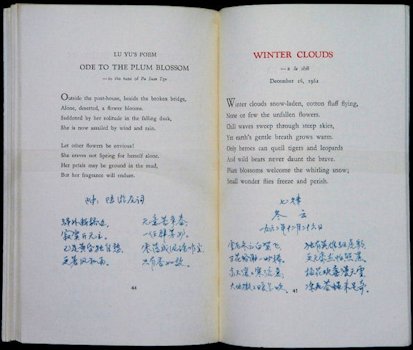 LU YU'S POEM
ODE TO THE PLUM BLOSSOM
—to the tune of Pu Suan Tzu
Outside the post-house, beside the broken bridge,
Alone, deserted, a flower blooms.
Saddened by her solitude in the falling dusk,
She is now assailed by wind and rain.
Let other flowers be envious!
She craves not Spring for herself alone.
Her petals may be ground in the mud,
But her fragrance will endure.
陆游
驿外断桥边
寂寞开无主
已是黄昏独自愁
更著风和雨
无意苦争春
一任群芳妒
零落成泥碾作尘
只有香如故
44
WINTER CLOUDS
—a lu shih
December 26, 1962
Winter clouds snow-laden, cotton fluff flying,
None or few the unfallen flowers.
Chill waves sweep through steep skies,
Yet earth's gentle breath grows warm.
Only heroes can quell tigers and leopards
And wild bears never daunt the brave.
Plum blossoms welcome the whirling snow;
Small wonder flies freeze and perish.
七律
冬云
一九六二年十二月二十六日
雪压冬云白絮飞
万花纷谢一时稀
高天滚滚寒流急
大地微微暖气吹
独有英雄驱虎豹
更无豪杰怕熊罴
梅花欢喜漫天雪
冻死苍蝇未足奇
45